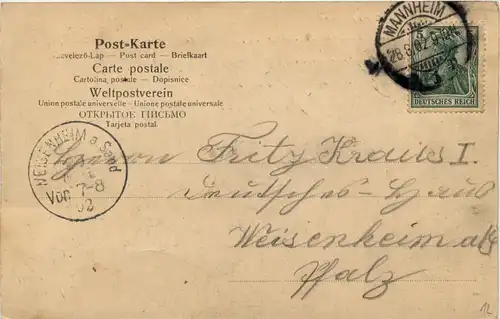 Post-Karte
Levelező-Lap — Post card — Briefkaart
Carte postale
Cartolina postale — Dopisnice
Weltpostverein
Union postale universelle — Unione postale universale
ОТКРЫТОЕ ПИСЬМО
Tarjeta postal.
MANNHEIM
DEUTSCHES REICH
WEISENHEIM a Sand
Vor. 7-8
02
Herrn Fritz Kraus I.
Deutsches-Haus
Weisenheim a/S
Pfalz
12